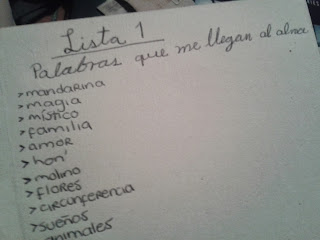 Lista 1
Palabras que me llegan al alma
>mandarina
>magia
>místico
>familia
>amor
>hon'
>molino
>flores
>circunferencia
>sueños
animales